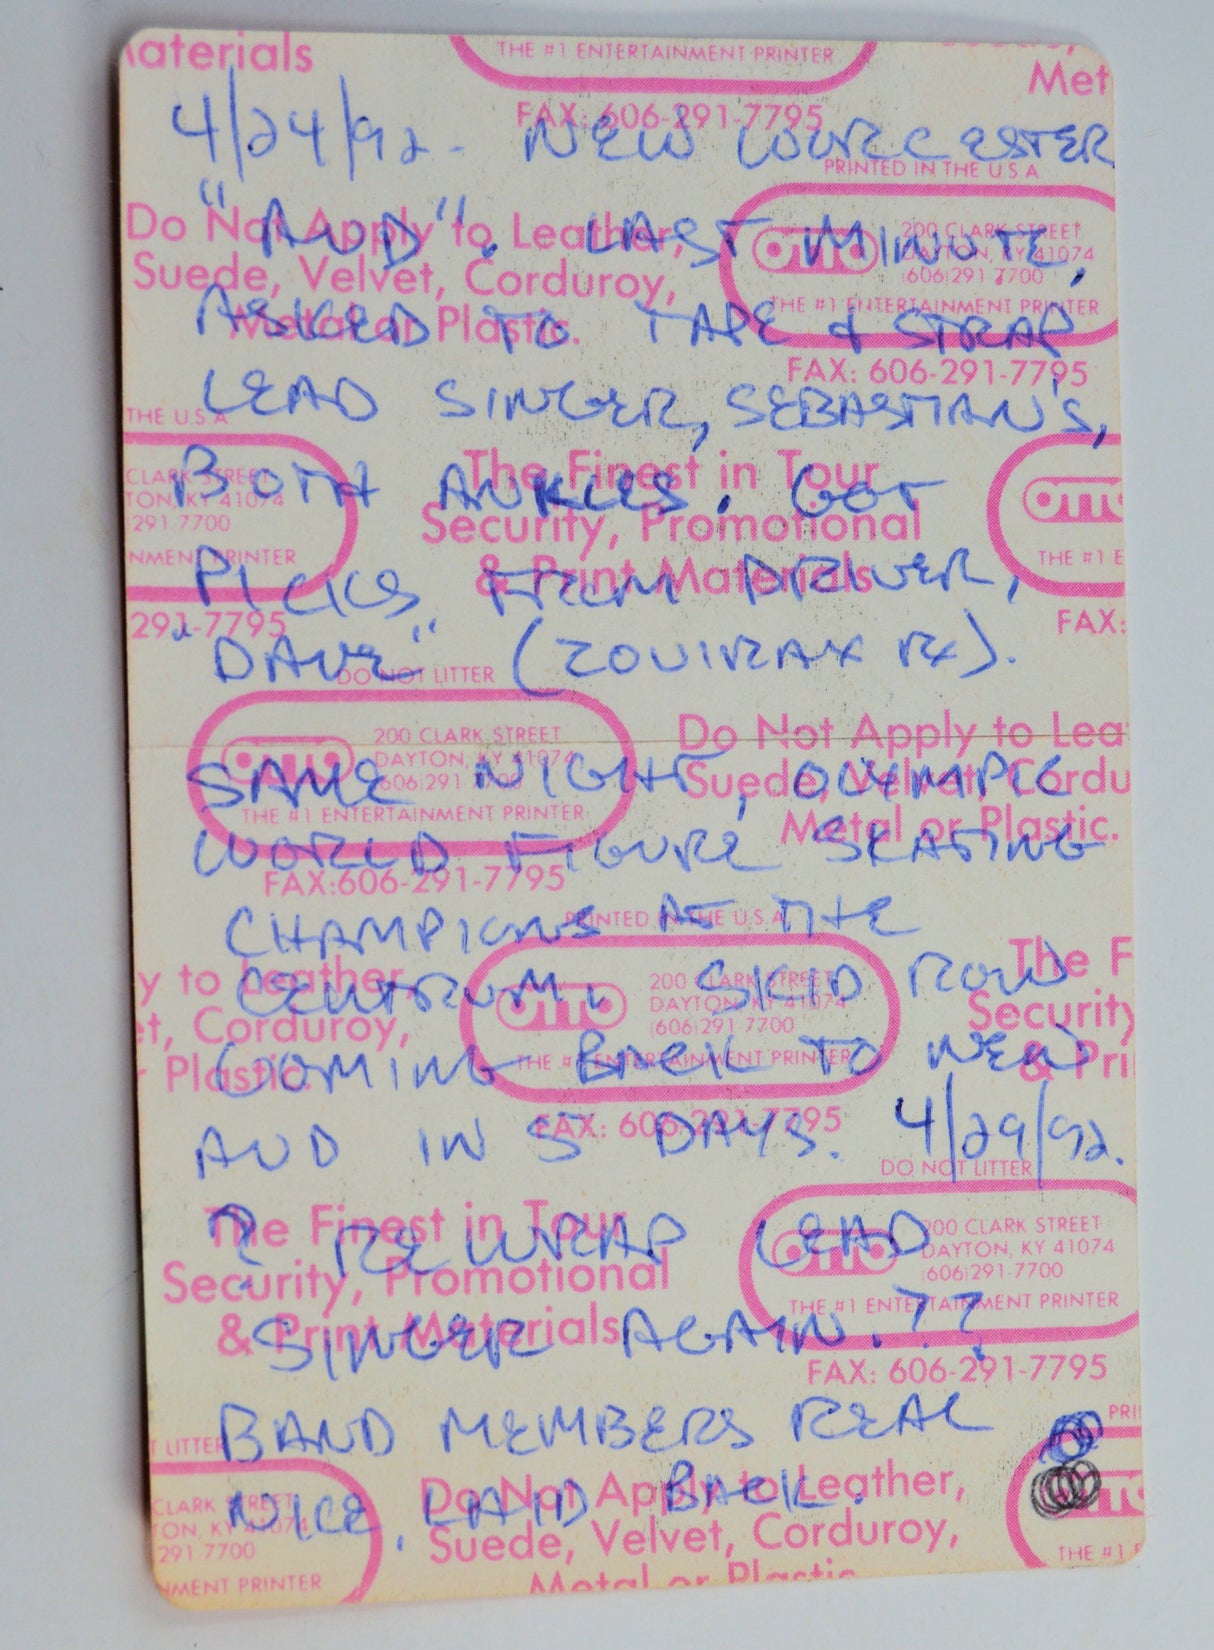 aterials
THE #1 ENTERTAINMENT PRINTER
Met
FAX: 606-291-7795
4/24/92. NEW WORCESTER
PRINTED IN THE U S A
"AUD". LAST MINUTE,
Do Not Apply to Leather,
Suede, Velvet, Corduroy,
Metal or Plastic.
OTTO
200 CLARK STREET
DAYTON, KY 41074
(606)291 7700
THE #1 ENTERTAINMENT PRINTER
ASKED TO TAPE & STRAP
FAX: 606-291-7795
LEAD SINGER, SEBASTIAN'S,
THE U.S.A
CLARK STREET
TON, KY 41074
291 7700
NMENT PRINTER
291-7795
BOTH ANKLES. GOT
The Finest in Tour
Security, Promotional
& Print Materials
OTTO
THE #1 E
FAX:
PICKS FROM DRIVER,
"DAVE" (ZOVIRAX RX).
DO NOT LITTER
OTTO
200 CLARK STREET
DAYTON, KY 41074
(606)291-7700
THE #1 ENTERTAINMENT PRINTER
FAX:606-291-7795
Do Not Apply to Lea
Suede, Velvet, Cordu
Metal or Plastic.
SAME NIGHT, OLYMPIC
WORLD FIGURE SKATING
CHAMPIONS AT THE
PRINTED IN THE U.S.A.
CENTRUM. SKID ROW
y to Leather,
et, Corduroy,
Plastic.
OTTO
200 CLARK STREET
DAYTON, KY 41074
(606)291 7700
THE #1 ENTERTAINMENT PRINTER
The F
Security
& Pri
COMING BACK TO NEW
FAX: 606-291-7795
AUD IN 5 DAYS. 4/29/92.
DO NOT LITTER
? REWRAP LEAD
The Finest in Tour
Security, Promotional
& Print Materials
OTTO
200 CLARK STREET
DAYTON, KY 41074
(606)291-7700
THE #1 ENTERTAINMENT PRINTER
FAX: 606-291-7795
SINGER AGAIN.??
BAND MEMBERS REAL
T LITTER
PRI
NICE, LAID BACK.
CLARK STREET
TON, KY 41074
291 7700
NMENT PRINTER
Do Not Apply to Leather,
Suede, Velvet, Corduroy,
Metal or Plastic
THE #1 E